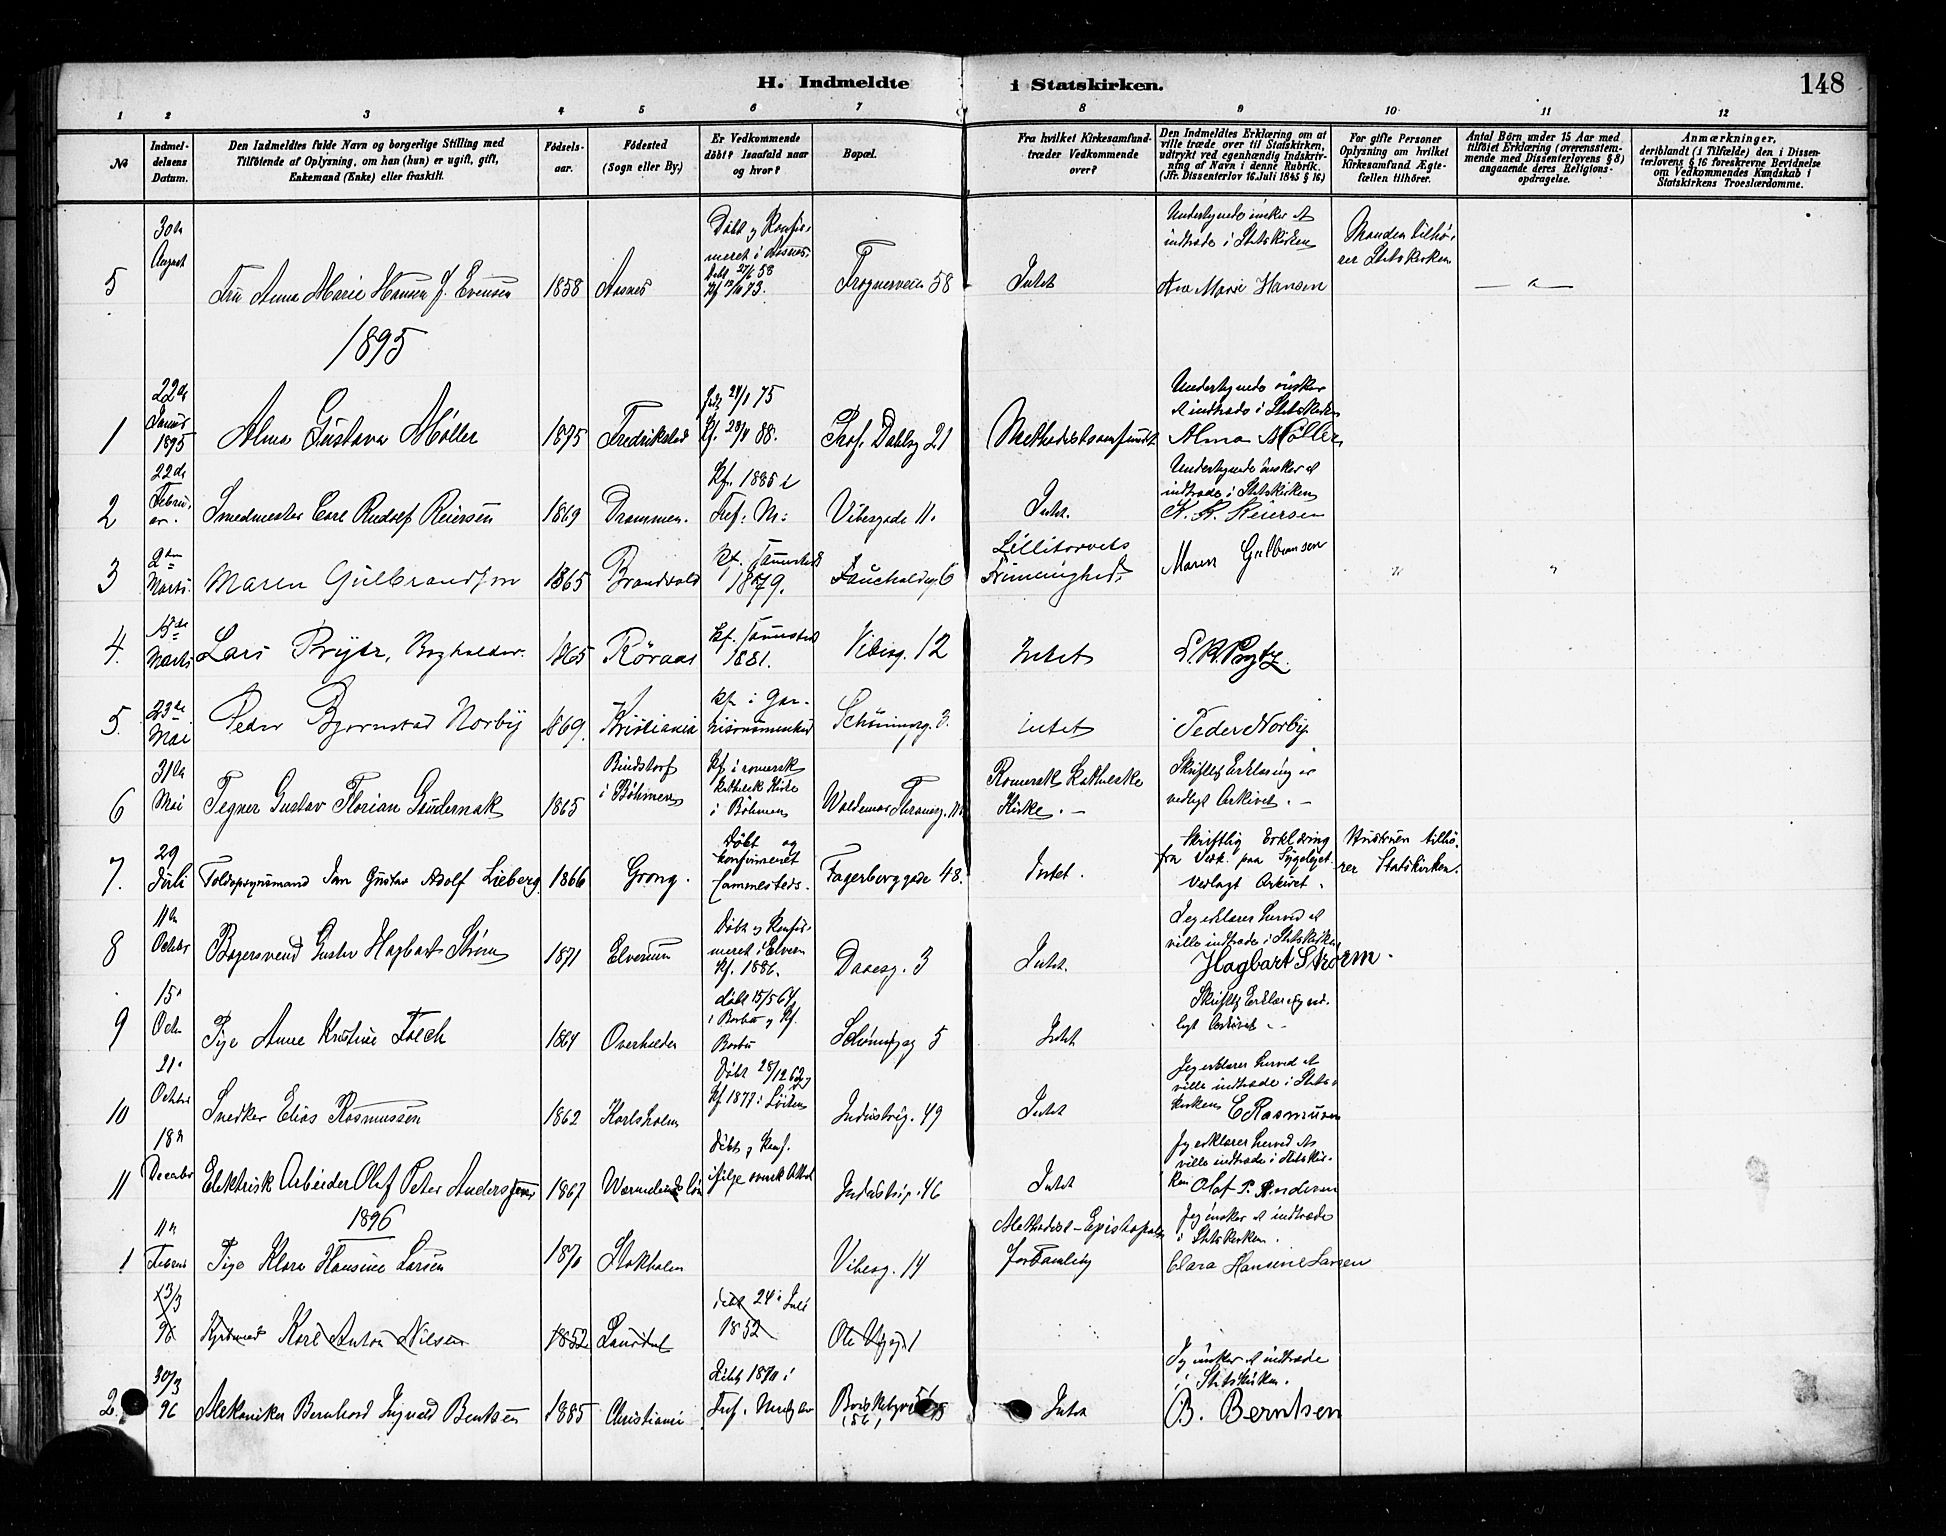 H. Indmeldte i Statskirken.
148
1 2 3 4 5 6 7 8 9 10 11 12
No
Indmel-
delsens
Datum.
Den Indmeldtes fulde Navn og borgerlige Stilling med
Tilføiende af Oplysning, om han (hun) er ugift, gift,
Enkemand (Enke) eller fraskilt.
Fødsels-
aar.
Fødested
(Sogn eller By.)
Er Vedkommende
døbt? Isaafald naar
og hvor?
Bopæl.
Fra hvilket Kirkesamfund-
træder Vedkommende
over?
Den Indmeldtes Erklæring om at
ville træde over til Statskirken,
udtrykt ved egenhændig Indskriv-
ning af Navn i denne Rubrik.
(Jfr. Dissenterlov 16. Juli 1845 § 16)
For gifte Personer
Oplysning om hvilket
Kirkesamfund Ægte-
fællen tilhører.
Antal Børn under 15 Aar med
tilføiet Erklæring (overensstem-
mende med Dissenterlovens § 8)
angaaende deres Religions-
opdragelse.
Anmærkninger,
deriblandt (i Tilfælde) den i Dissen-
terlovens § 16 foreskrevne Bevidnelse
om Vedkommendes Kundskab i
Statskirkens Troeslærdomme.
5
August
Fru Anna Marie Hansen f. Evensen
1858
Aasnes
Døbt og Konfir-
meret i Aasnes.
Frognerveien 58
Intet
Undertegnede ønsker at
indtræde i Statskirken
Ane Marie Hansen
Manden tilhø-
rer Statskirken
1895
1
22de
Januar
1895
Alma Gustava Møller
1875
Fredrikstad
Kf. 88.
Prof. Dahlsg 21
Methodistsamfundet
Undertegnede ønsker
at indtræde i Statskirken
Alma Møller
2
22de
Februar.
Smedmester Carl Rudolf Reiersen
1869
Drammen.
Kf. 1885 i
Tref: M:
Vibesgade 11.
Intet.
Undertegnede ønsker at
indtræde i Statskirken
K. R. Reiersen
3
2den
Marts.
Maren Gulbrandsen
1865
Brandvold
Kf. sammesteds
1879.
Fauchaldsg. 6
Lilletorvets
Frimenighed.
Maren Gulbransen
4.
15de
Marts
Lars Prytz, Bogholder.
1865
Röraas
Kf. sammesteds
1881.
Vibesg. 12
Intet
L. R. Prytz.
5.
23de
Mai
Peder Bjørnstad Norby
1869.
Kristiania
Kf. i Gar-
nisonsmenighed
Schöningsg. 3.
intet
Peder Norby
6
31te
Mai
Tegner Gustav Florian Gaudernak
1865
i Böhmen
Kf. i romersk
katholsk Kirke
i Böhmen
Waldemar Thranesg. 11
Romersk Katholske
Kirke. —
Skriftlig Erklæring er
vedlagt Arkivet. —
7.
29
Juli
Toldopsynsmand Jan Gustav Adolf Lieberg
1866
Grong.
Døbt og
konfirmeret
sammesteds.
Fagerborggade 48.
Intet.
Skriftlig Erklæring
fra Vedk. paa Sygeleiet
Vedlagt Arkivet.
Hustruen tilhø-
rer Statskirken.
8
11te
October
Bagersvend Gustav Hagbart Strøm
1871
Elverum
Døbt og Konfir-
meret i Elverum
Kf. 1886.
Daasg. 3
Intet.
Jeg erklærer herved at
ville indtræde i Statskirken
Hagbart Strøm.
9
15.
Octr
Pige Anne Kristine Falch
1864
Overhalden
døbt 15/5 64
Schøningsg 5
Intet
Skriftlig Erklæring ved-
lagt Arkivet
10
21.
October
Snedker Elias Rasmussen
1862
Karlsholm
Industrig. 49
Intet
Jeg erklærer herved at
ville indtræde i Stats-
kirken E Rasmussen
11
18de
December
Elektrisk Arbeider Olaf Peter Anderssen
1867
Wermlands län
Døbt og Konf.
ifølge svensk Attest
Industrig. 46
Intet
Jeg erklærer herved at
ville indtræde i Statskir-
ken Olaf P. Andersen
1896
1
11te
Februar
Pige Klara Hansine Larsen
1870
Stokholm
Vibesg. 14
Methodist-Episkopale
forsamling
Jeg ønsker at indtræde
i Statskirken.
Clara Hansine Larsen
13/3
96
Karl Anton Nilsen
1852
Laurdal
døbt 24 i Juli
1852
1
2.
30/3
96
Mekaniker Bernhard Ingvald Bentsen
1885
Christiania
(56)
Intet
Jeg ønsker at indtræde
i Statskirken.
B. Berntsen